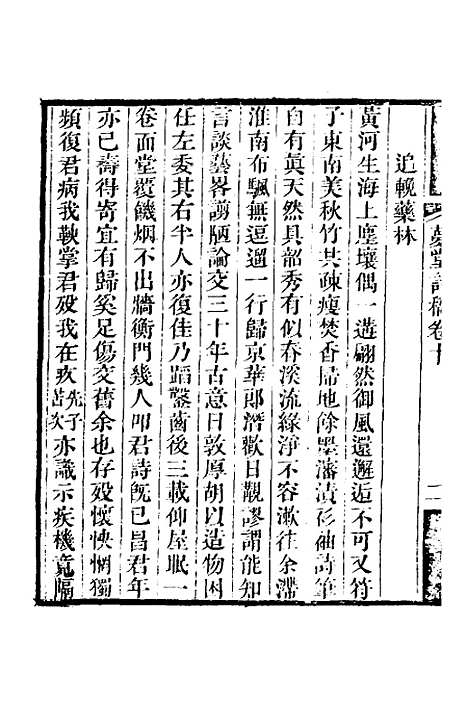 夢堂詩稿卷十
二
追輓藥林
黃河生海上塵壤偶一遘翩然御風還邂逅不可又符
子東南美秋竹其疎瘦焚香掃地餘墨瀋漬衫袖詩筆
自有眞天然具韶秀有似春溪流綠淨不容漱往余滯
淮南布颿無逗遛一行歸京華郎潛歡日覯謬謂能知
言談藝畧謭陋論交三十年古意日敦厚胡以造物困
任左委其右半人亦復佳乃蹈鑿齒後三載仰屋眠一
卷面堂覆饑烟不出牆衡門幾人叩君詩旣已昌君年
亦已壽得寄宜有歸奚足傷交舊余也存歿懷怏惘獨
頻復君病我鞅掌君歿我在疚先子苫次亦識示疾機竟隔